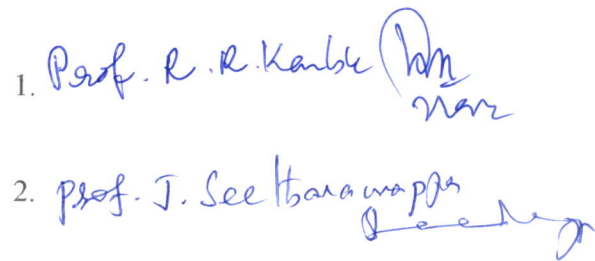 1. Prof. R. R. Kamble
2. Prof. J. Seetharamappa